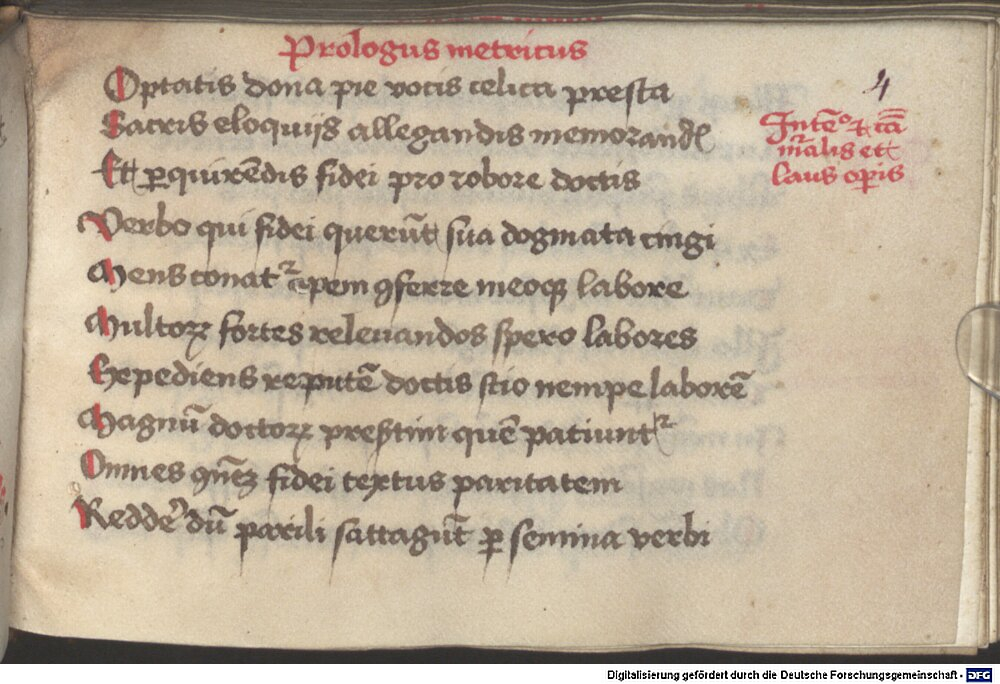 Prologus metricus
Optatis dona pie vocis celica presta
Sacris eloquijs allegandis memorandꝭ
Et ꝑquirēdis fidei pro robore doctis
Verbo qui fidei querūt sua dogmata cingi
Mens conatᷣ opem ꝯferre meoqꝫ labore
Multoꝝ fortes releuandos spero labores
Expediens reputē doctis scio nempe laborē
Magnū doctoꝝ presertim quē patiuntᷣ
Omnes fidei textus paritatem
Redde᷑ dū parili sattagūt ꝑ semina verbi
4
Intēᵒ ⁊ cā
mr̄alis et
laus oꝑis
Digitalisierung gefördert durch die Deutsche Forschungsgemeinschaft - DFG